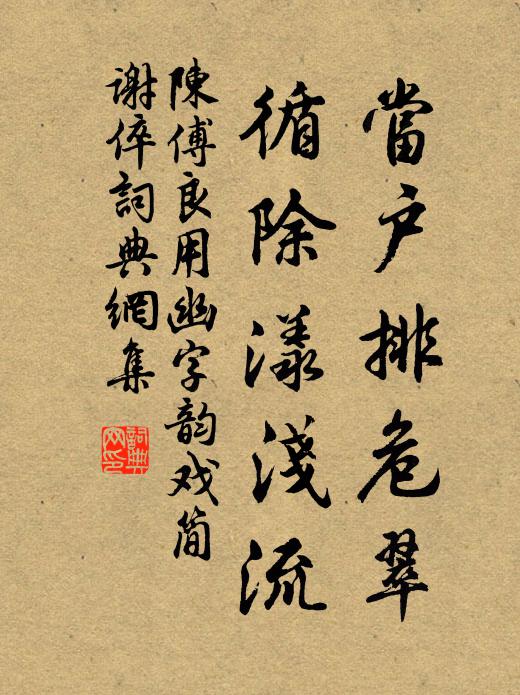 當户排危翠
循除漾淺流
陳傅良用幽字韵戏简
谢倅詞典網集
詞典
网印